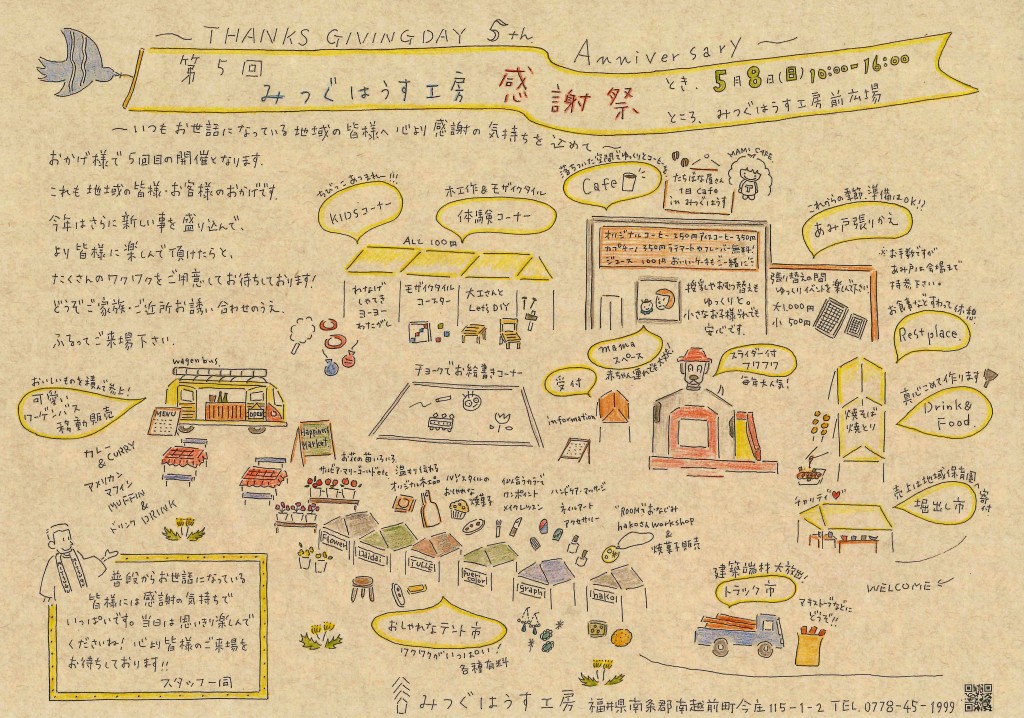 ～ THANKS GIVINGDAY 5th Anniversary ～
第5回
みつぐはうす工房 感謝祭
とき、5月8日(日) 10:00-16:00
ところ、みつぐはうす工房前広場
～いつもお世話になっている地域の皆様へ心より感謝の気持ちを込めて～
おかげ様で5回目の開催となります。
これも地域の皆様・お客様のおかげです。
今年はさらに新しい事を盛り込んで、
より皆様に楽しんで頂けたらと、
たくさんのワクワクをご用意してお待ちしております!
どうぞご家族・ご近所お誘い合わせのうえ、
ふるってご来場下さい。
ちびっこあつまれー!!!
KIDSコーナー
木工作&モザイクタイル
体験コーナー
ALL 100円
わなげ
しゃてき
ヨーヨー
わたがし
モザイクタイル
コースター
大工さんと
Let's DIY
落ちついた空間でゆっくりとコーヒーを
Cafe
たちばな屋さん
1日cafe
in みつぐはうす
MAMI CAFE
オリジナルコーヒー 250円 アイスコーヒー 350円
カプチーノ 350円 ラテアートやフレーバー無料!
ジュース 100円 おいしいケーキもご一緒に
授乳やお絵り替えも
ゆっくりと。
小さなお子様連れでも
安心です。
これからの季節、準備はOK!!
あみ戸張りかえ
※お手数ですが
あみ戸は会場まで
持参下さい。
張り替えの間
ゆっくりイベントを楽しんで下さい
大1,000円
小 500円
お食事などすわって休憩
Rest place.
mama
スペース
赤ちゃん連れでも大丈夫!
スライダー付
フワフワ
毎年大人気!
受付
information
チョークでお絵書きコーナー
wagen bus.
おいしいものを積んで参上!
可愛い
ワーゲンバス
移動販売
MENU
OPEN
カレー
& CURRY
アメリカン
マフィン
MUFFIN
&
ドリンク DRINK
Happiness
Market
お花の苗いろいろ
サルビア・マリーゴールドetc
温もり伝わる
オリジナル木工品
NYスタイルの
おしゃれな
焼菓子
似合うカラーで
ワンポイント
メイクレッスン
ハンドケア・マッサージ
ネイルアート
アクセサリー
"ROOM"でおなじみ
hakoさん workshop
&
焼菓子販売
Flower
Daidai
TULLE
Pure color
graphi
hako!
おしゃれなテント市
ワクワクがいっぱい!
各種有料
真心こめて作ります
Drink&
Food.
焼そば
焼とり
売上は地域保育園へ寄付
堀出し市
チャリティ
WELCOME
建築端材大放出!
トラック市
マキストーブなどに
どうぞ!!
普段からお世話になっている
皆様には感謝の気持ちで
いっぱいです。当日は思いきり楽しんで
くださいね! 心より皆様のご来場を
お待ちしております!!
スタッフ一同
みつぐはうす工房 福井県南条郡南越前町今庄115-1-2 TEL.0778-45-1999